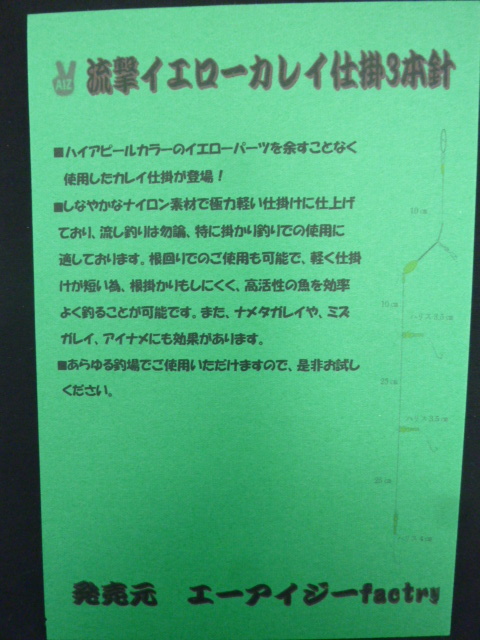 AIZ
流撃イエローカレイ仕掛3本針
■ハイアピールカラーのイエローパーツを余すことなく
使用したカレイ仕掛が登場！
■しなやかなナイロン素材で極力軽い仕掛けに仕上げ
ており、流し釣りは勿論、特に掛かり釣りでの使用に
適しております。根回りでのご使用も可能で、軽く仕掛
けが短い為、根掛かりもしにくく、高活性の魚を効率
よく釣ることが可能です。また、ナメタガレイや、ミズ
ガレイ、アイナメにも効果があります。
■あらゆる釣場でご使用いただけますので、是非お試し
ください。
ハリス
ハリス
ハリス
発売元　エーアイジーfactry